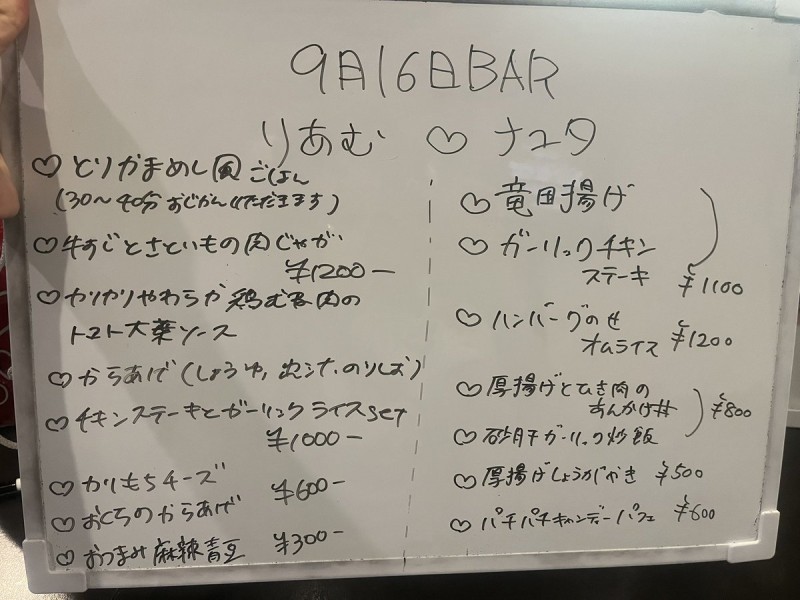 9月16日BAR
りあむ ♡ ナユタ
♡ とりかまめし風ごはん
(30〜40分おじかんいただきます)
♡ 牛すじとさといもの肉じゃが
¥1200−
♡ カリカリやわらか鶏むね肉の
トマト大葉ソース
♡ からあげ(しょうゆ,
♡ チキンステーキとガーリックライスset
¥1000−
♡ かりもちチーズ ¥600−
♡ おくちのからあげ
♡ おつまみ麻辣青豆 ¥300−
♡ 竜田揚げ
♡ ガーリックチキン
ステーキ ¥1100
♡ ハンバーグのせ
オムライス ¥1200
♡ 厚揚げとひき肉の
あんかけ丼 ¥800
♡ 砂肝ガーリック炒飯
♡ 厚揚げしょうがやき ¥500
♡ パチパチキャンディーパフェ ¥600